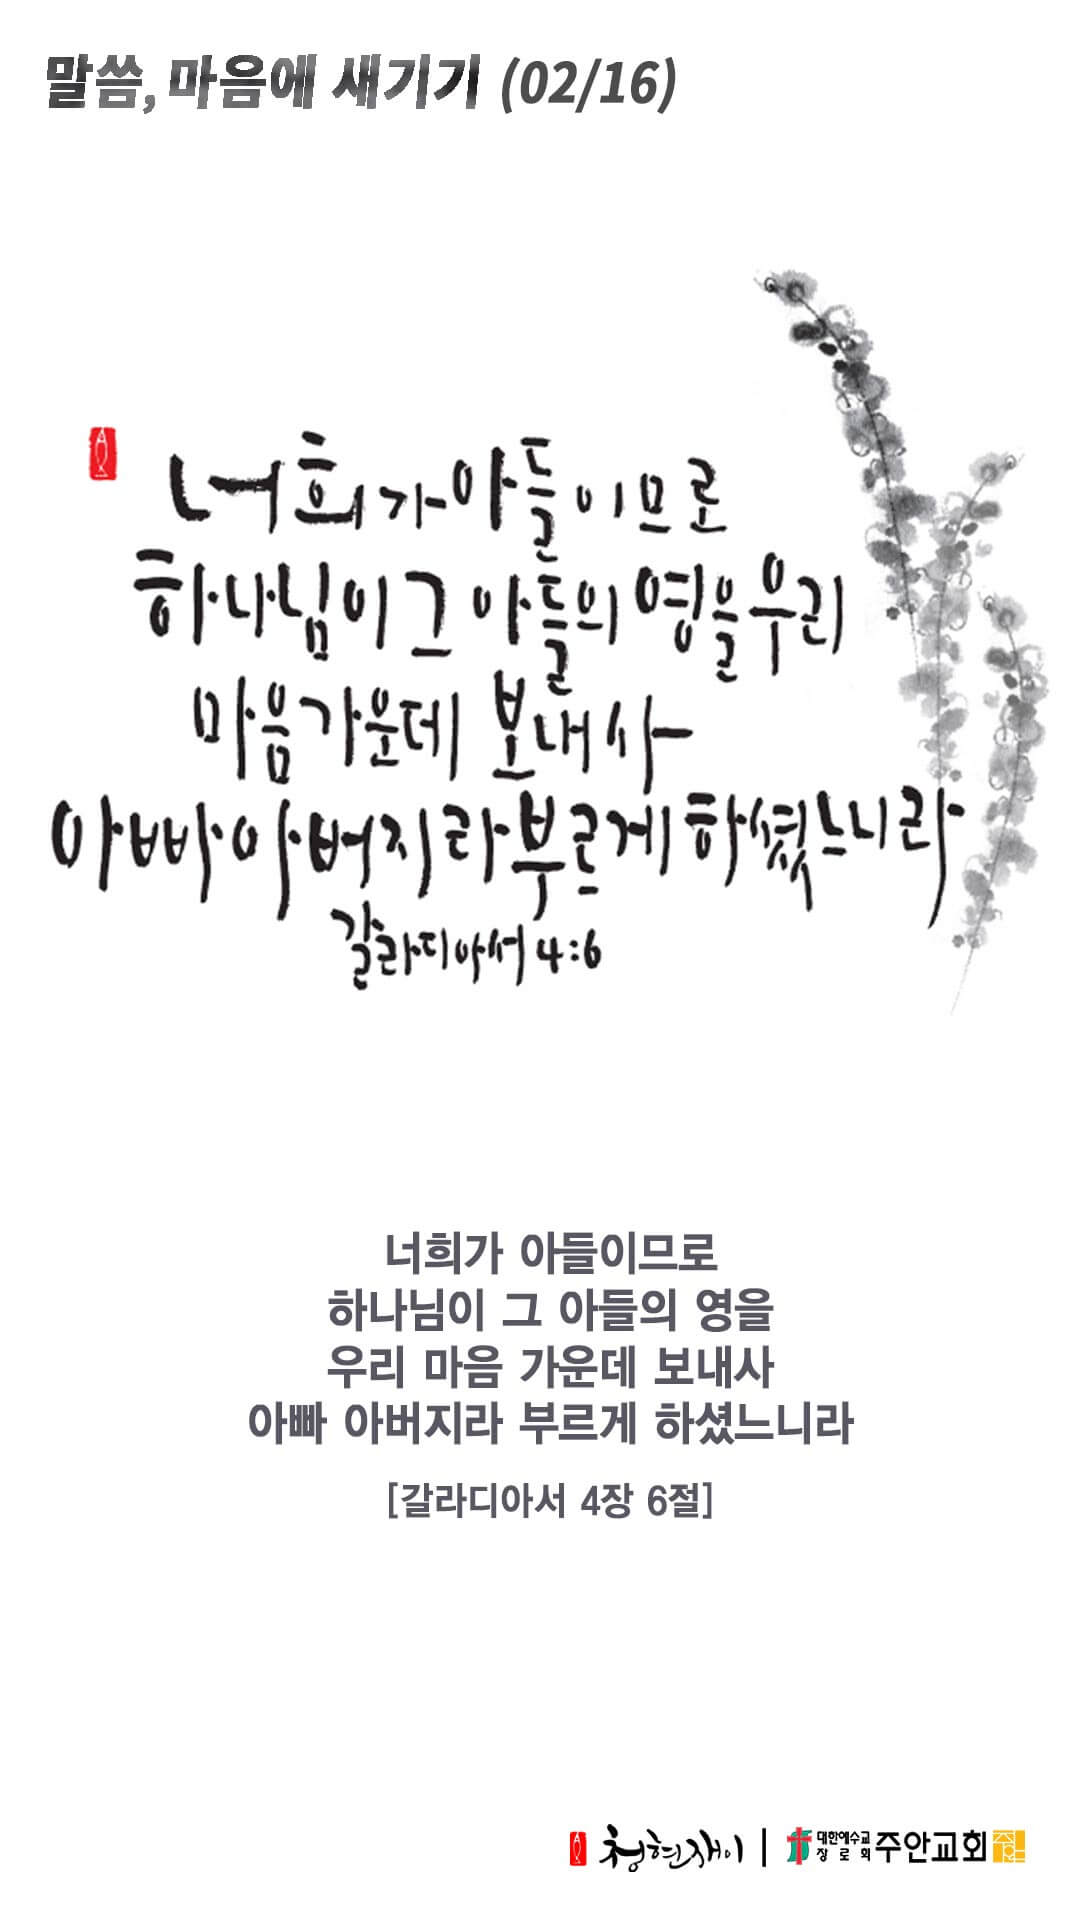 말씀, 마음에 새기기 (02/16)
너희가 아들이므로
하나님이 그 아들의 영을 우리
마음 가운데 보내사
아빠 아버지라 부르게 하셨느니라
갈라디아서 4:6
너희가 아들이므로
하나님이 그 아들의 영을
우리 마음 가운데 보내사
아빠 아버지라 부르게 하셨느니라
[갈라디아서 4장 6절]
청현재이 | 대한예수교 장로회 주안교회